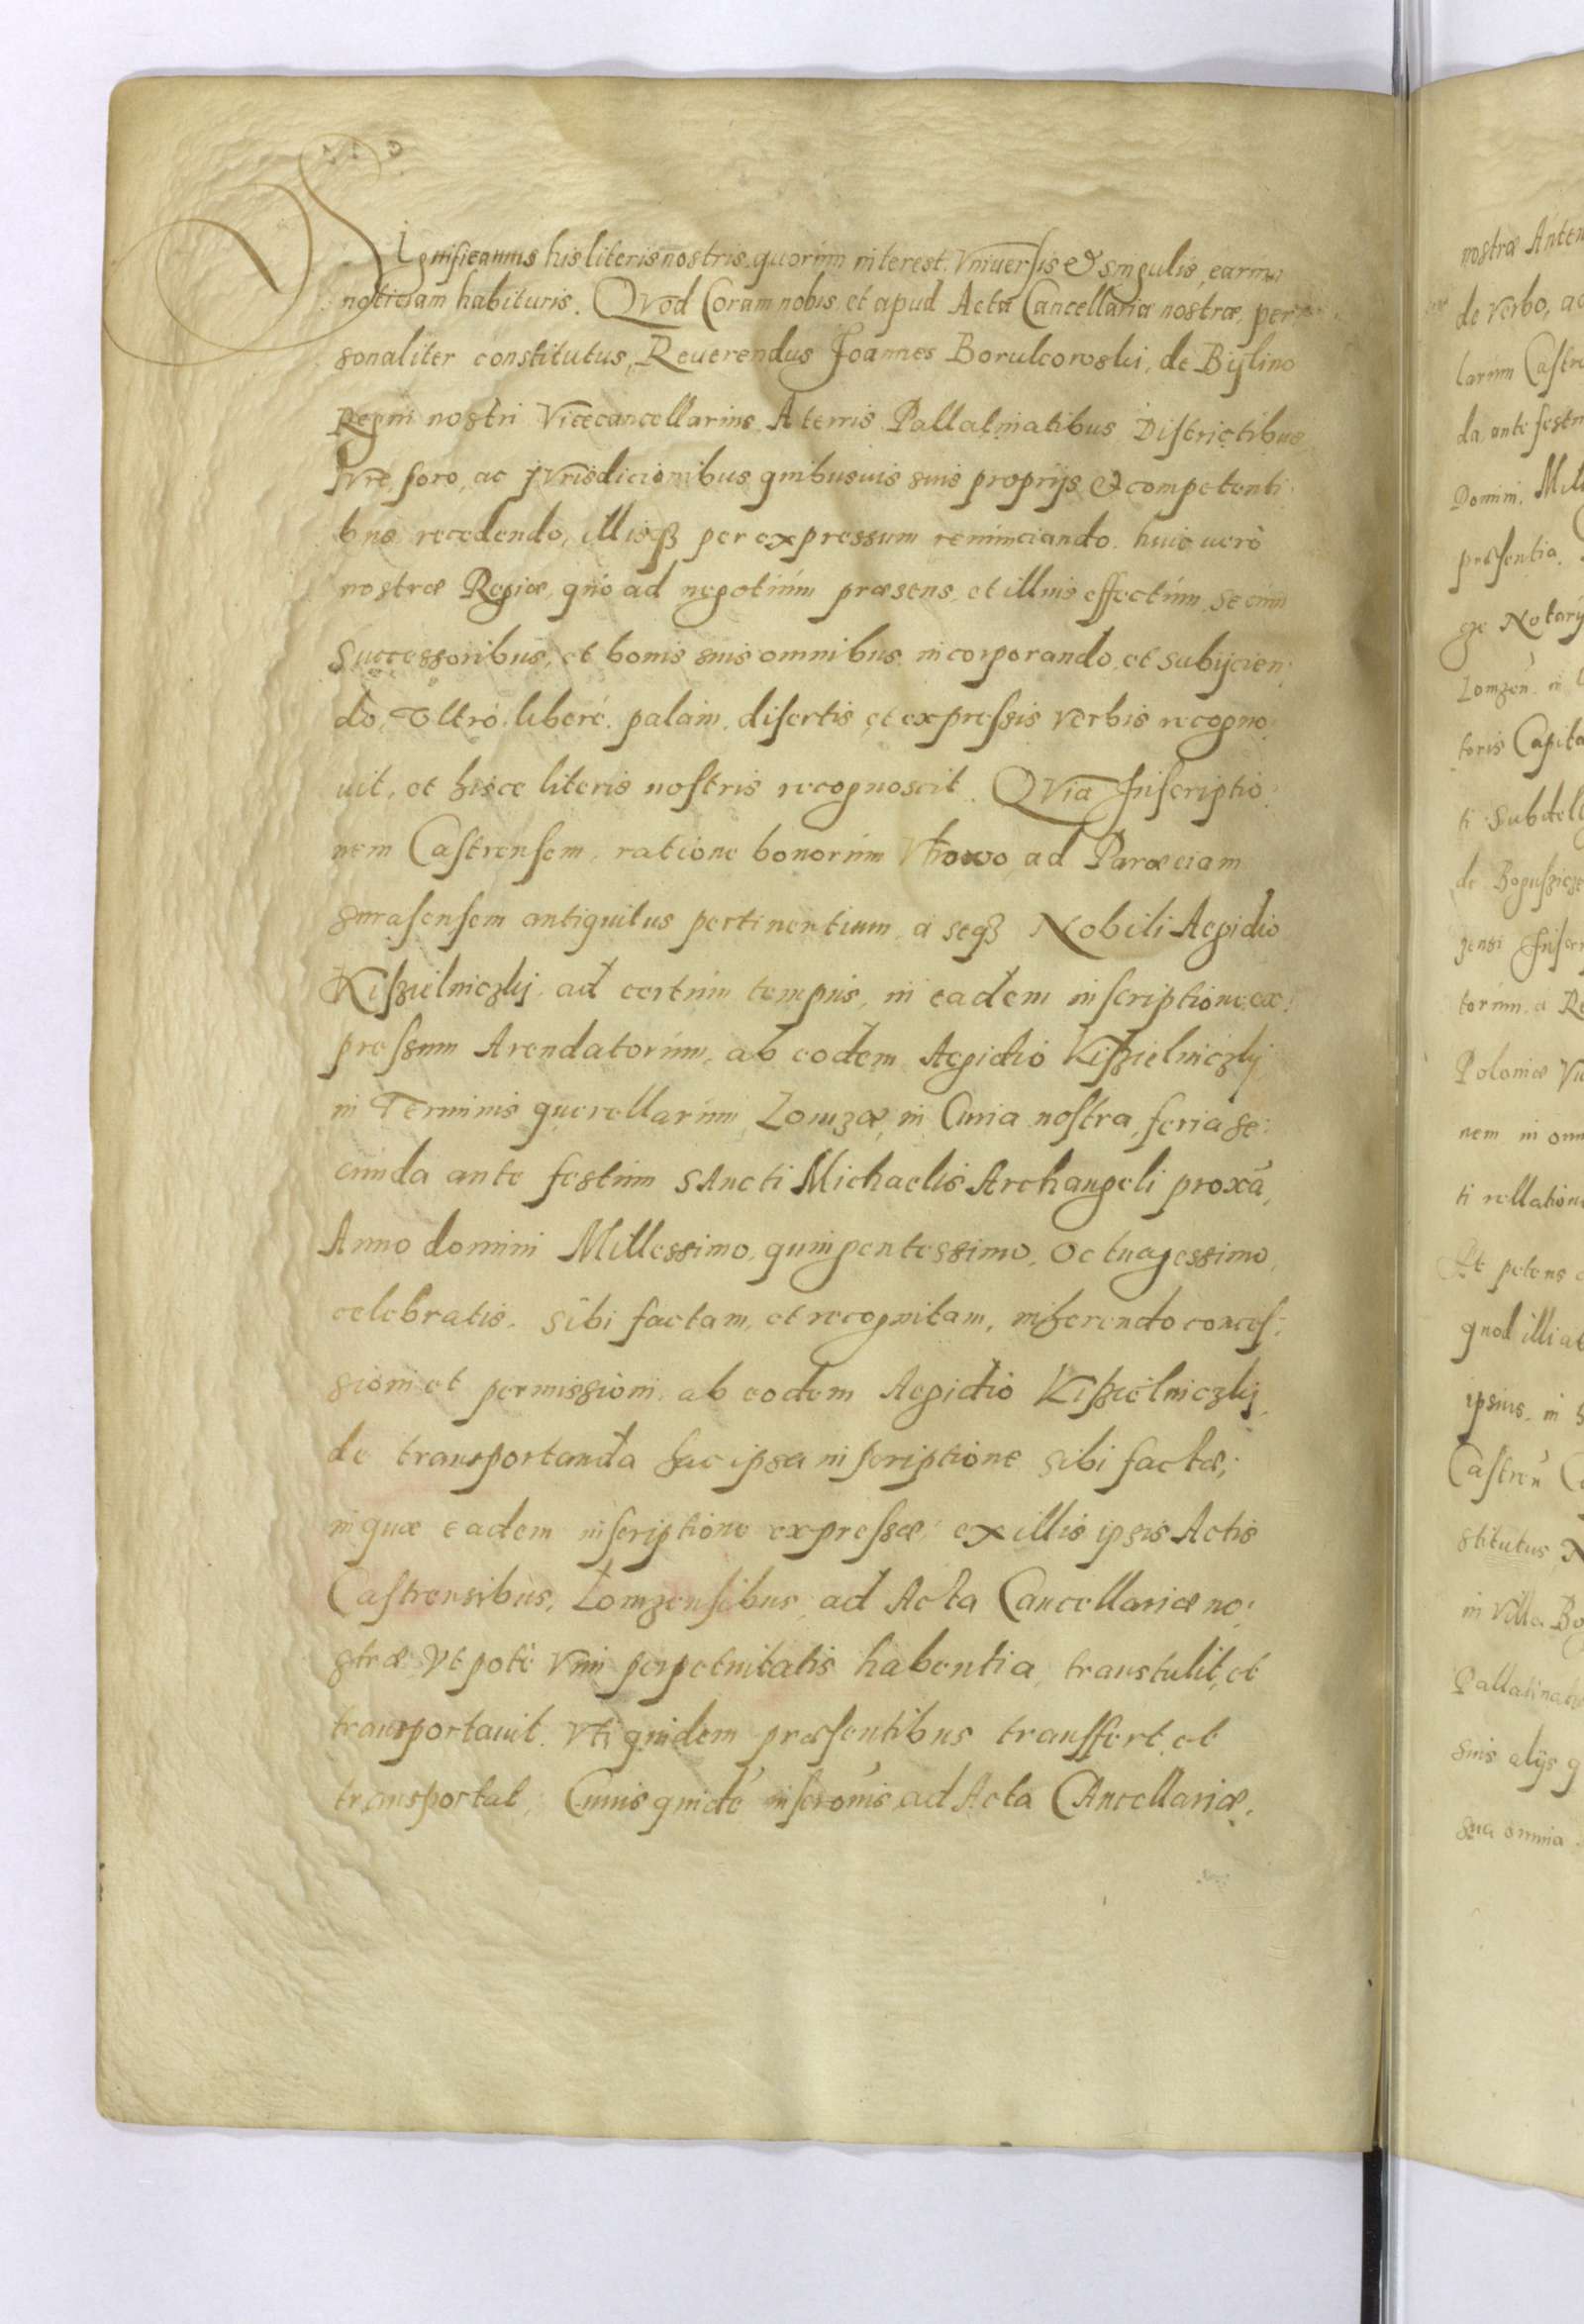 Significamus his literis nostris, quorum interest, Vniuersis & singulis, earum
noticiam habituris. QVod Coram nobis et apud Acta Cancellariæ nostræ, per
sonaliter constitutus, Reuerendus Joannes Borulcowski, de Bijlino
Regni nostri Vicecancellarius, A terris Pallatinatibus Districtibus
JVre, foro, ac jVrisdicionibus quibusuis suis proprijs & competenti
bus recedendo, illisqз per expressum renunciando. huic uerò
nostræ Regiæ, quò ad negotium præsens, et illius effectum, se cum
Successoribus, et bonis suis omnibus incorporando, et subijcien
do, Vltrò, liberé, palàm, disertis et expressis verbis recogno:
uit, et hisce literis nostris recognoscit. QVia Inscriptio:
nem Castrensem, ratione bonorum Vhowo, ad Paræciam
Surasensem antiquitus pertinentium, à seqз Nobili Aegidio
Kißielniczkij, ad certum tempus, in eadem inscriptione ex:
pressum Arendatorum, ab eodem Aegidio Kißielniczkij
in Terminis querellarum, Lomzæ, in Curia nostra, feria se:
cunda ante festum SAncti Michaelis Archangeli proxã,
Anno domini Millessimo, quingentessimo, Octuagessimo,
celebratis, sibi factam, et recognitam, inhærendo conces:
sioni et permissioni ab eodem Aegidio Kißielniczkij,
de transportanda hac ipsa inscriptione sibi factæ,
inquæ eadem inscriptione expressæ: ex illis ipsis Actis
Castrensibus, Lomzensibus, ad Acta Cancellariæ no:
stræ Vtpotè Vim perpetuitatis habentia, transtulit, et
transportauit. Vti quidem præsentibus transffert et
transportat, Cuius quidẽ inscrõnis ad Acta CAncellariæ.
nostræ Anten
de Verbo, ac
larum Castre
da ante festu
Domini, Mill
præsentia,
ge Notarij
Lomzeñ. in
toris Capita
ti Subdel
de Bogußicze
zensi Inscr
torum, à Re
Poloniæ Vi
nem in omn
ti rellatione
Et petens
quod illi ab
ipsius, in
Castreñ C
stitutus, N
in Villa Bo
Pallatinatib
suis alijs q
sua omnia